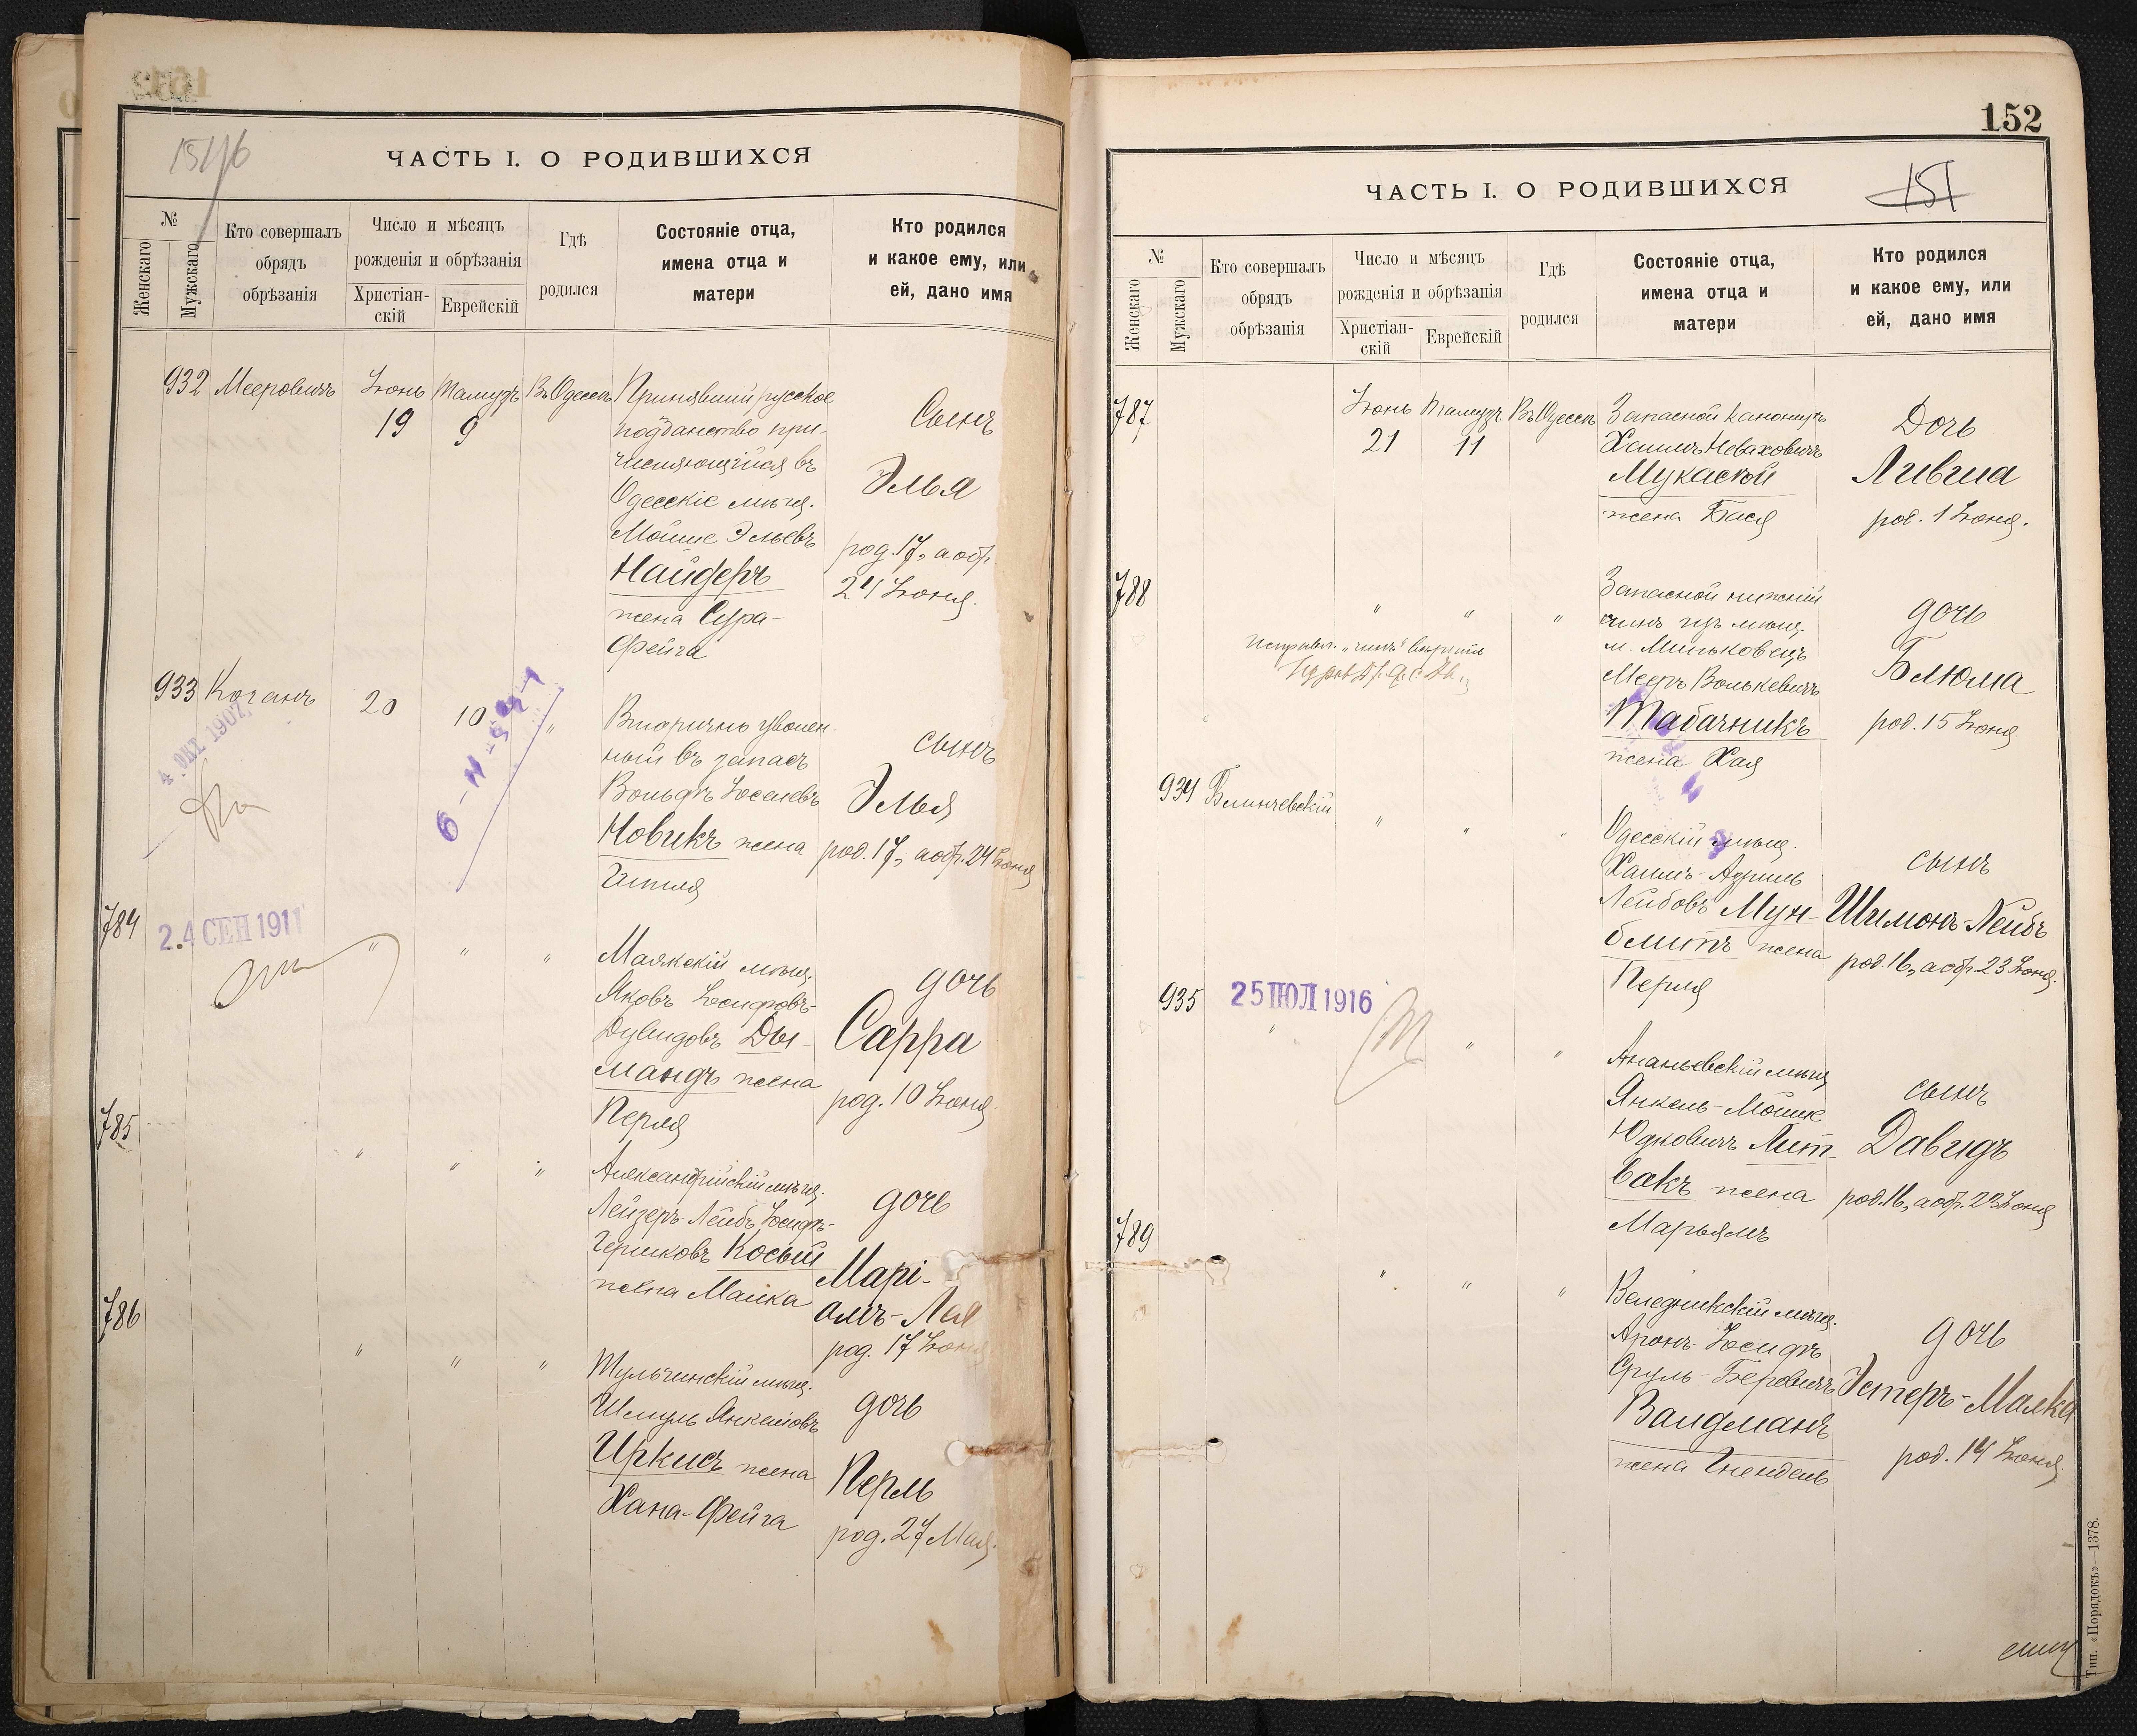 151/б
ЧАСТЬ I. О РОДИВШИХСЯ
№
Женскаго
Мужскаго
Кто совершалъ
обрядъ
обрѣзанія
Число и мѣсяцъ
рожденія и обрѣзанія
Христіан-
скій
Еврейскій
Гдѣ
родился
Состояніе отца,
имена отца и
матери
Кто родился
и какое ему, или
ей, дано имя
932 Мееровичъ Іюнь Тамузъ Въ Одессѣ Принявшій русское
19 9 подданство при-
числяющійся въ
Одесскіе мѣщ.
Мойше Эльевъ
Найдеръ
жена Сура-
Фейга
Сынъ
Элья
род. 17, а обр.
24 Іюня.
933 Коганъ 20 10 "
4. ОКТ 1907
Вторично уволен-
ный въ запасъ
Вольфъ Іоселевъ
Новикъ жена
Гитля
сынъ
Элья
род. 17, а обр. 24 Іюня
784
24 СЕН 1911
" " "
Маякскій мѣщ.
Яковъ Іосифовъ-
Дувидовъ Ды-
мандъ жена
Перля
дочь
Сарра
род. 10 Іюня
785 " " "
Александрійскій мѣщ.
Лейзеръ-Лейбъ Іосифъ-
Гершковъ Косый
жена Малка
дочь
Марі-
амъ-Лея
род. 17 Іюня
786 " " "
Тульчинскій мѣщ.
Шмуль Янкелевъ
Иркисъ жена
Хана-Фейга
дочь
Перль
род. 27 Мая.
152
151
ЧАСТЬ I. О РОДИВШИХСЯ
№
Женскаго
Мужскаго
Кто совершалъ
обрядъ
обрѣзанія
Число и мѣсяцъ
рожденія и обрѣзанія
Христіан-
скій
Еврейскій
Гдѣ
родился
Состояніе отца,
имена отца и
матери
Кто родился
и какое ему, или
ей, дано имя
787 Іюнь Тамузъ Въ Одессѣ Запасной канониръ
21 11 Хаимъ Неваховичъ
Мукаской
жена Бася
Дочь
Ливша
род. 1 Іюня.
788 " " "
Исправл. „чинъ" вѣрить
Запасной нижній
чинъ изъ мѣщ.
м. Миньковецъ
Мееръ Волькевичъ
Табачникъ
жена Хая
дочь
Блюма
род. 15 Іюня.
934 Блинчевскій " " "
Одесскій мѣщ.
Хаимъ-Азриль
Лейбовъ Мун-
блитъ жена
Перля
сынъ
Шимонъ-Лейбъ
род. 16, а обр. 23 Іюня.
935
25 ІЮЛ 1916
" " "
Ананьевскій мѣщ.
Янкель-Мошке
Юдковичъ Лит-
вакъ жена
Марьямъ
сынъ
Давидъ
род. 16, а обр. 23 Іюня
789 " " "
Веледникскій мѣщ.
Аронъ-Іосифъ
Сруль-Беровичъ
Валдманъ
жена Гнендель
дочь
Эстеръ-Малка
род. 14 Іюня.
Тип. «Порядокъ»—1378.